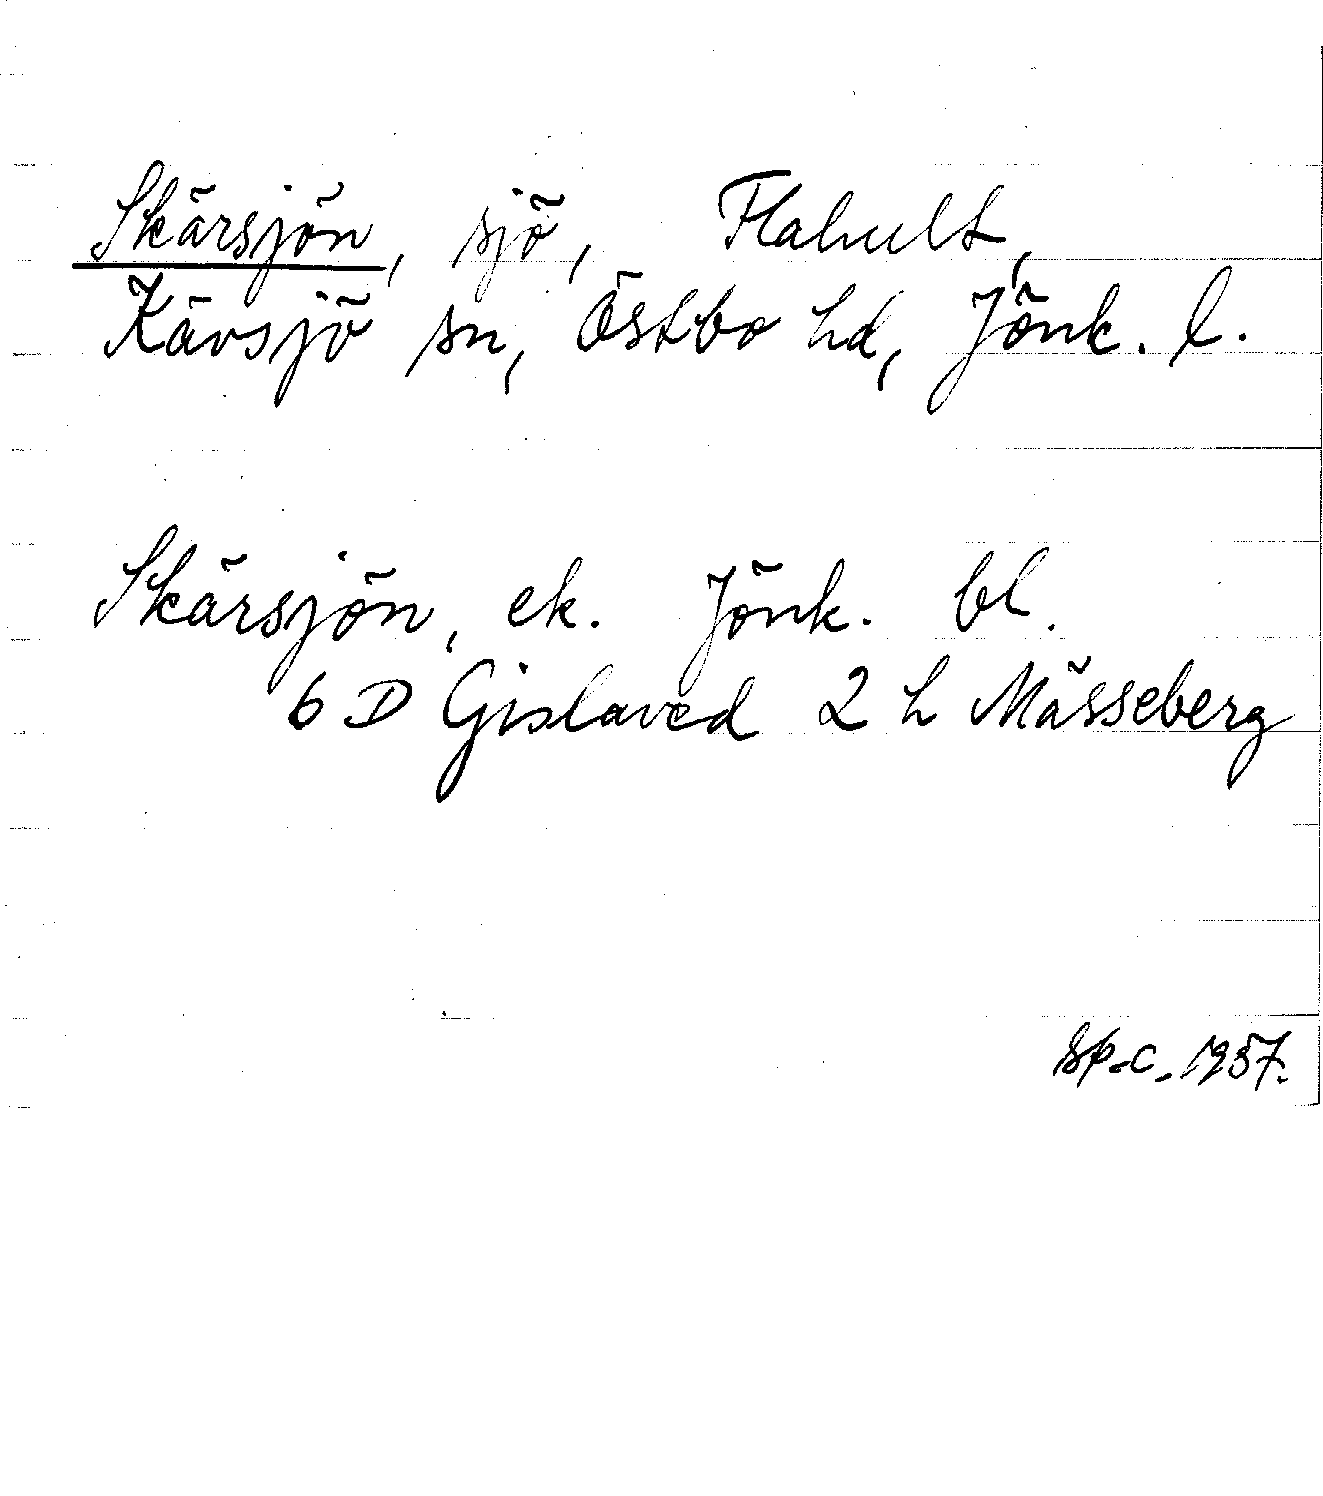 Skärsjön, sjö, Flahult,
Kävsjö sn, Östbo hd, Jönk. l.
Skärsjön, ek. Jönk. bl.
6 D Gislaved 2 h Mässeberg
1957.